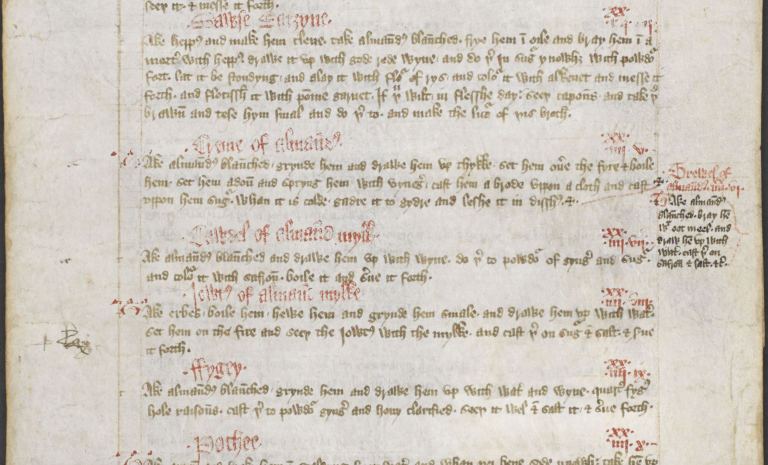 seep it. & messe it forth.
Sawse Sarzyne. .xx. .iiij. iiij.
Take hepp' and make hem clene. take almaūd' blaūched. frye hem ī oile and bray hem ī a
mort' with hepp'. drawe it up with rede wyne. and do þ' in sug' ynowh; with powdo'
fort. lat it be stondyng. and alay it with flo' of rys. and colo' it with alkenet and messe it
forth. and florissh it with pome garnet. If þ' wilt. in flesshe day; seep capons. and take þ'
brawn and tese hym smal and do þ' to. and make the lic' of þis broth.
Creme of almaūd'. .xx. .iiij. v.
Take almaūd' blaūched. grynde hem and drawe hem up thykke. set hem ou'e the fyre & boile
hem. set hem adoū and spryng hem with vyneg'; cast hem a brode uppon a cloth and cast
uppon hem sug'. whan it is colde. gadre it to gydre and leshe it in dissh'.
Grewel of
almaūd'. iiij. vj.
Take almaūd'
blaūched. bray hē
w' oot meel. and
draw hē up with
wat'. cast þ' on
safron & salt. &c.
Cawdel of almaūd mylk. .xx. .iiij. vij.
Take almaūd' blaūched and drawe hem up with wyne. do þ' to powdo' of gyng' and sug'
and colo' it with safron. boile it and s'ue it forth.
Jowt' of almaūd mylke .xx. .iiij. viij.
Take erbes. boile hem. hewe hem and grynde hem smale. and drawe hem up with wat'.
set hem on the fire and seep the jowt' with the mylke. and cast þ' on sug' & salt. & s'ue
it forth.
ffygey. .xx. .iiij. ix.
Take almaūd' blaūched. grynde hem and drawe hem up with wat' and wyne. quart' fyg'
hole raisons. cast þ' to powdo' gyng' and hony clarified. seep it wel & salt it. & s'ue forth.
Pochee. .xx. .iiij. x.